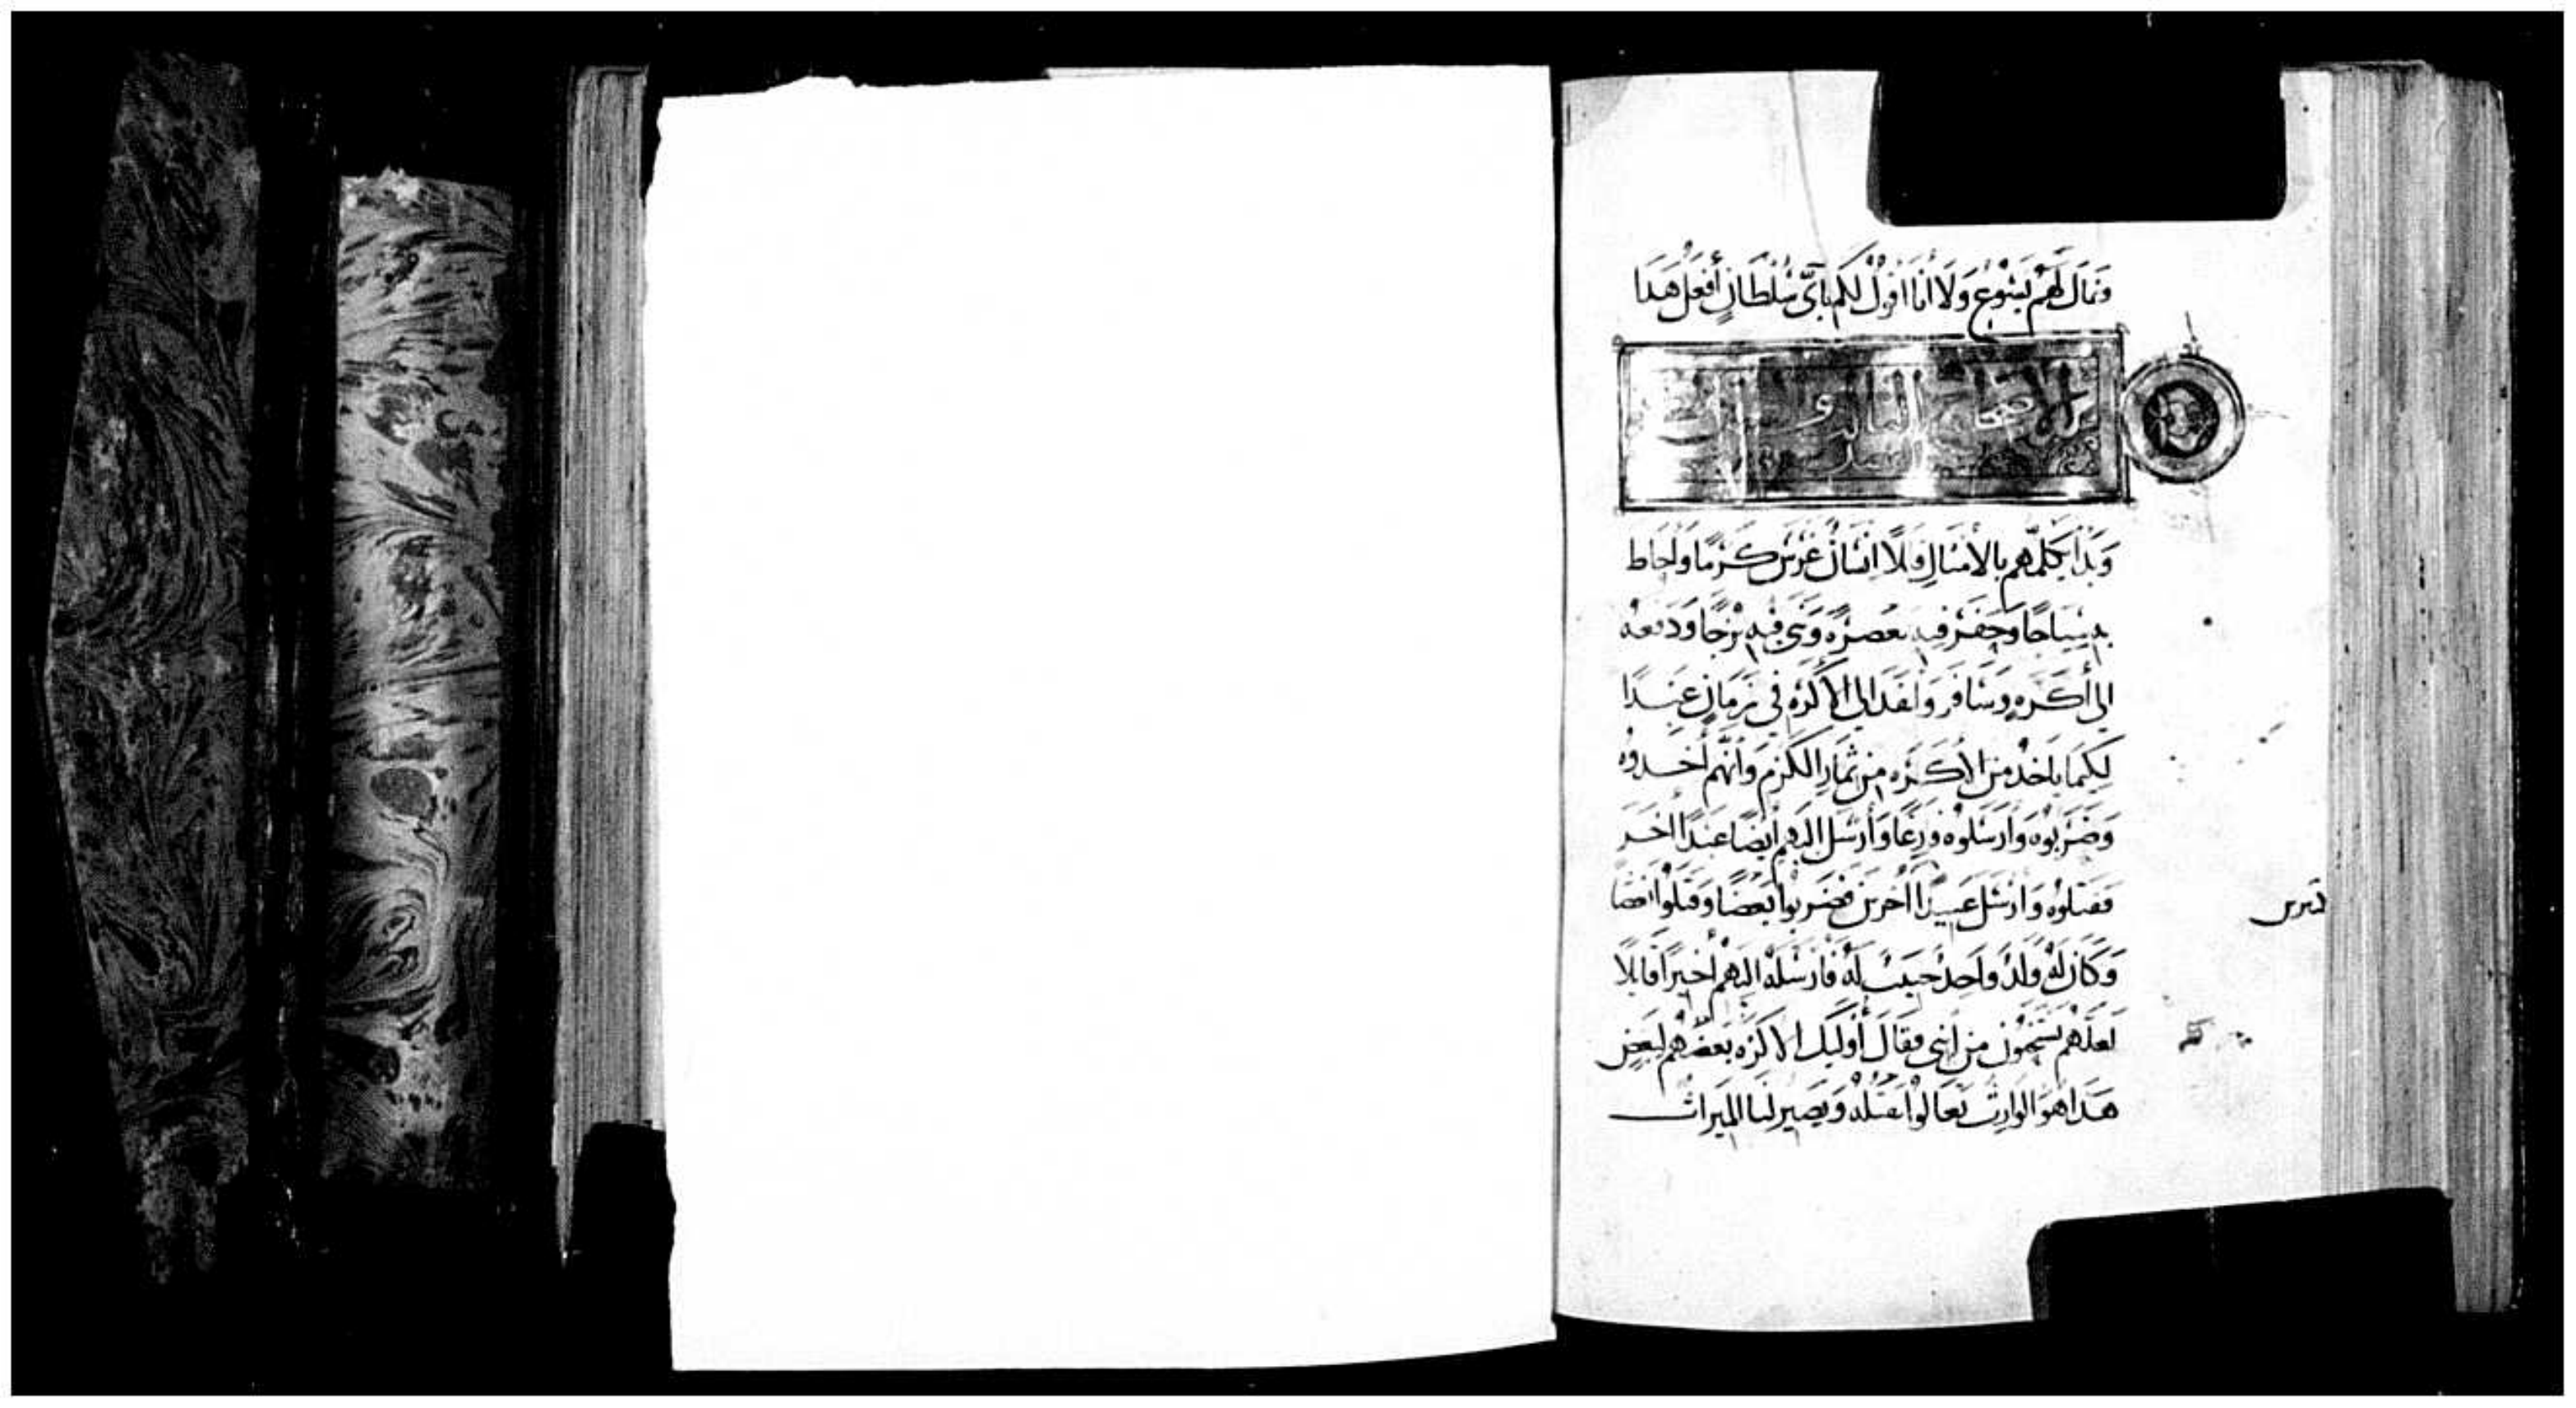 وَقَالَ لَهُمْ يَشُوْعُ وَلَا أَنَا أَقُولُ لَكُمْ بِأَىِّ سُلْطَانٍ أَفْعَلُ هَدَا
الاصحاح
وَبَدَأ يُكَلِّمُهُم بالأمثَالِ قَايلًا انسَانٌ غَرَسَ كَرْمًا وَأَحَاط
بِهِ سِيَاجًا وَحَفَرَ فِيهِ مَعْصَرَه وَبَنى فِيهِ بُرْجًا وَدَفعَهُ
الى أَكَرَهٍ وَسَافَر وَانفَدَ الى الأكَرَه فِي زَمَانٍ عَبْدًا
لِكَيمَا يَاخُدَ مِنَ الأَكَرَه مِن ثمَارِ الكَرْم وَأَنَّهم أَخَدوُه
وَضَرَبُوُه وَأَرْسَلوُه فَارِغًا وَأَرْسَل اليهِم أيضًا عَبدًا اخَر
فَقَتَلوُه وَارْسَل عَبِيدًا أُخَرِينَ فضَربوا بَعْضًا وَقتَلوُا بَعضًا
وَكَانَ لَهُ وَلَدٌ وَاحِدٌ حَبيبٌ لَهُ فَأَرْسَلَهُ اليهم أخيرًا قَايلًا
لَعَلَّهُم يَسْتَحْيُون مِن ابْنِى فقَالَ أُوليكَ الأَكَرَه بَعْضُهُم لِبَعْضٍ
هَدَا هُوَ الوَارِثُ تَعَالوُا نقتُلهُ وَيَصِيرُ لنَا المِيرَاثُ